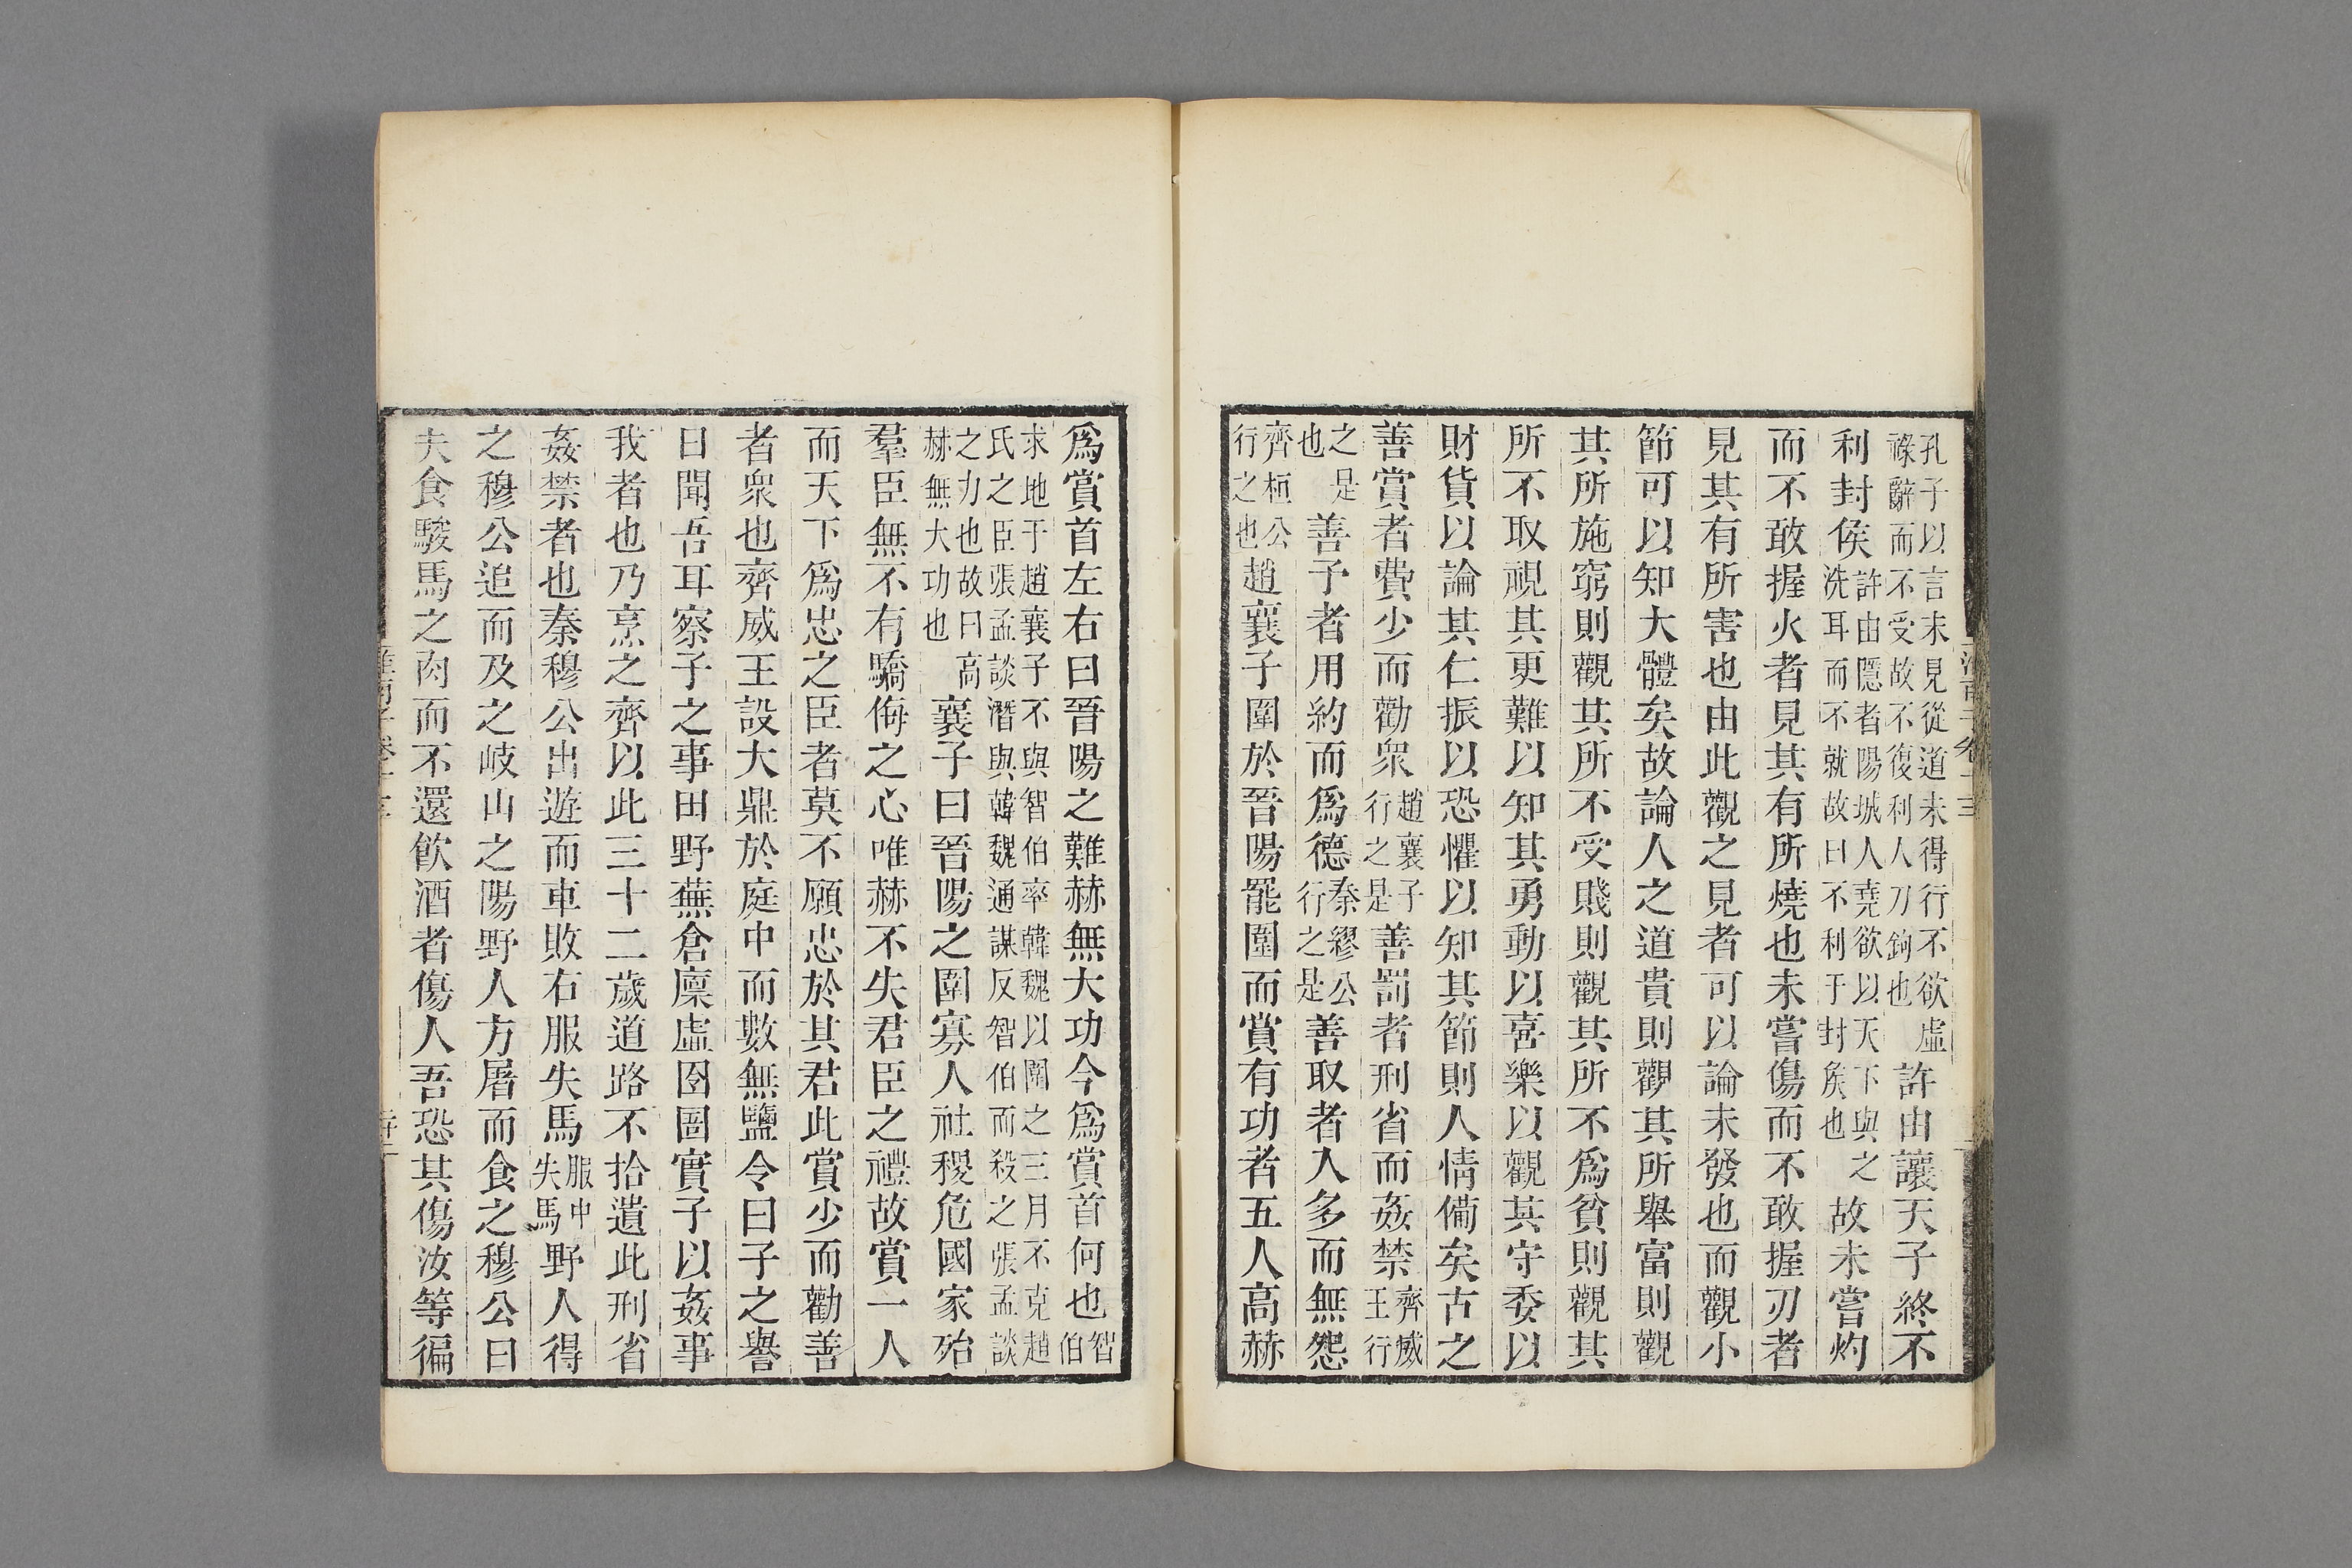 孔子以言未見從道未得行不欲虛
祿辭而不受故不復利人刀鉤也
許由讓天子終不
利封侯
許由隱者陽城人堯欲以天下與之
洗耳而不就故曰不利于封矦也
故未嘗灼
而不敢握火者見其有所燒也未嘗傷而不敢握刃者
見其有所害也由此觀之見者可以論未發也而觀小
節可以知大體矣故論人之道貴則觀其所舉富則觀
其所施窮則觀其所不受賤則觀其所不爲貧則觀其
所不取視其更難以知其勇動以喜樂以觀其守委以
財貨以論其仁振以恐懼以知其節則人情備矣古之
善賞者費少而勸衆
趙襄子
行之是
善罰者刑省而姦禁
齊威
王行
之是
也
善予者用約而爲德
秦繆公
行之是
善取者入多而無怨
齊桓公
行之也
趙襄子圍於晉陽罷圍而賞有功者五人高赫
爲賞首左右曰晉陽之難赫無大功今爲賞首何也
智
伯
求地于趙襄子不與智伯率韓魏以圍之三月不克趙
氏之臣張孟談潛與韓魏通謀反智伯而殺之張孟談
之力也故曰高
赫無大功也
襄子曰晉陽之圍寡人社稷危國家殆
羣臣無不有驕侮之心唯赫不失君臣之禮故賞一人
而天下爲忠之臣者莫不願忠於其君此賞少而勸善
者衆也齊威王設大鼎於庭中而數無鹽令曰子之譽
日聞吾耳察子之事田野蕪倉廩虛囹圄實子以姦事
我者也乃烹之齊以此三十二歲道路不拾遺此刑省
姦禁者也秦穆公出遊而車敗右服失馬
服中
失馬
野人得
之穆公追而及之岐山之陽野人方屠而食之穆公曰
夫食駿馬之肉而不還飲酒者傷人吾恐其傷汝等徧